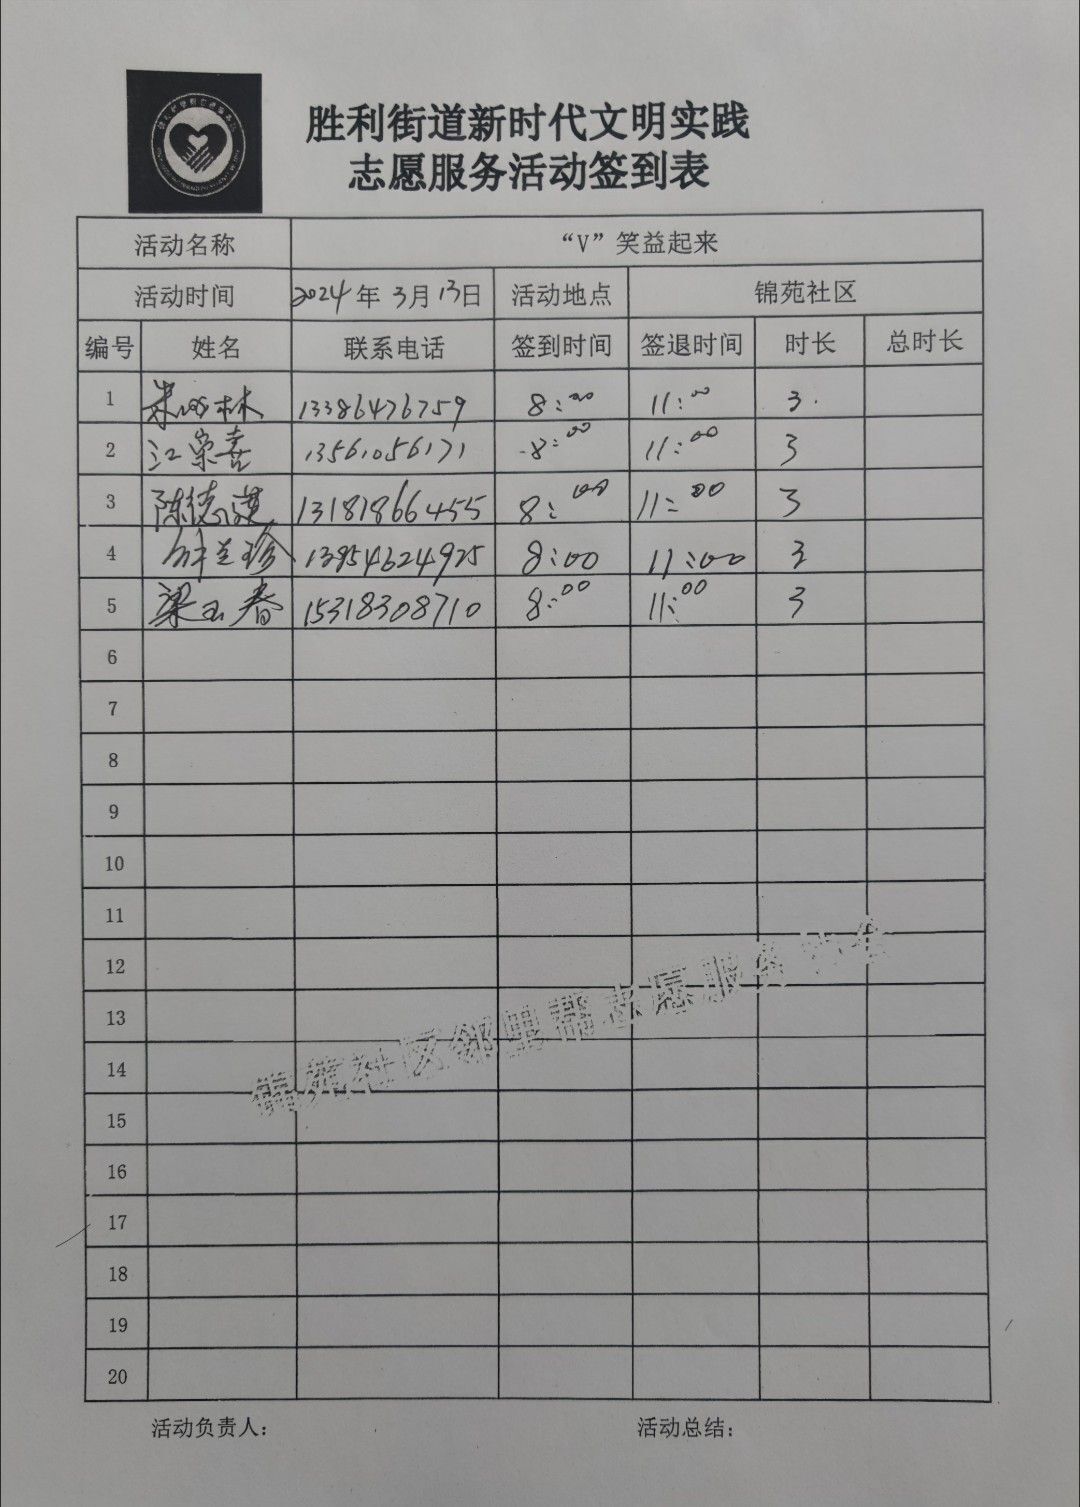 胜利街道新时代文明实践
志愿服务活动签到表
活动名称 “V”笑益起来
活动时间 2024年 3月13日 活动地点 锦苑社区
编号 姓名 联系电话 签到时间 签退时间 时长 总时长
1 林 13386476759 8:00 11:00 3.
2 江荣喜 13561056171 8:00 11:00 3
3 陈德 13181866455 8:00 11:00 3
4 兰珍 13954624925 8:00 11:00 3
5 梁玉春 15318308710 8:00 11:00 3
6
7
8
9
10
11
12
13
14
15
16
17
18
19
20
锦苑社区邻里帮志愿服务协会
活动负责人: 活动总结: